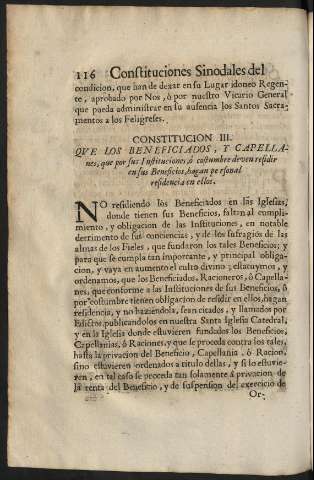 116 Constituciones Sinodales del
condicion, que han de dexar en su Lugar idoneo Regen-
te, aprobado por Nos, ò por nuestro Vicario General
que pueda administrar en su ausencia los Santos Sacra-
mentos a los Feligreses.
CONSTITUCION III.
QVE LOS BENEFICIADOS, Y CAPELLA-
nes, que por sus Instituciones, ò costumbre deven residir
en sus Beneficios, hagan personal
residencia en ellos.
NO residiendo los Beneficiados en las Iglesias,
donde tienen sus Beneficios, faltan al cumpli-
miento, y obligacion de las Instituciones, en notable
detrimento de sus conciencias, y de los sufragios de las
almas de los Fieles, que fundaron los tales Beneficios; y
para que se cumpla tan importante, y principal obliga-
cion, y vaya en aumento el culto divino; estatuymos, y
ordenamos, que los Beneficiados, Racioneros, ò Capella-
nes, que conforme a las Instituciones de sus Beneficios, ò
por costumbre tienen obligacion de residir en ellos, hagan
residencia, y no haziendola, sean citados, y llamados por
Edictos, publicandolos en nuestra Santa Iglesia Catedral,
y en la Iglesia donde estuvieren fundados los Beneficios,
Capellanias, ò Raciones, y que se proceda contra los tales,
hasta la privacion del Beneficio, Capellania, ò Racion,
sino estuvieren ordenados a titulo dellas, y si lo estuvie-
ren, en tal caso se proceda tan solamente à privacion de
la renta del Beneficio, y de suspension del exercicio de
Or-